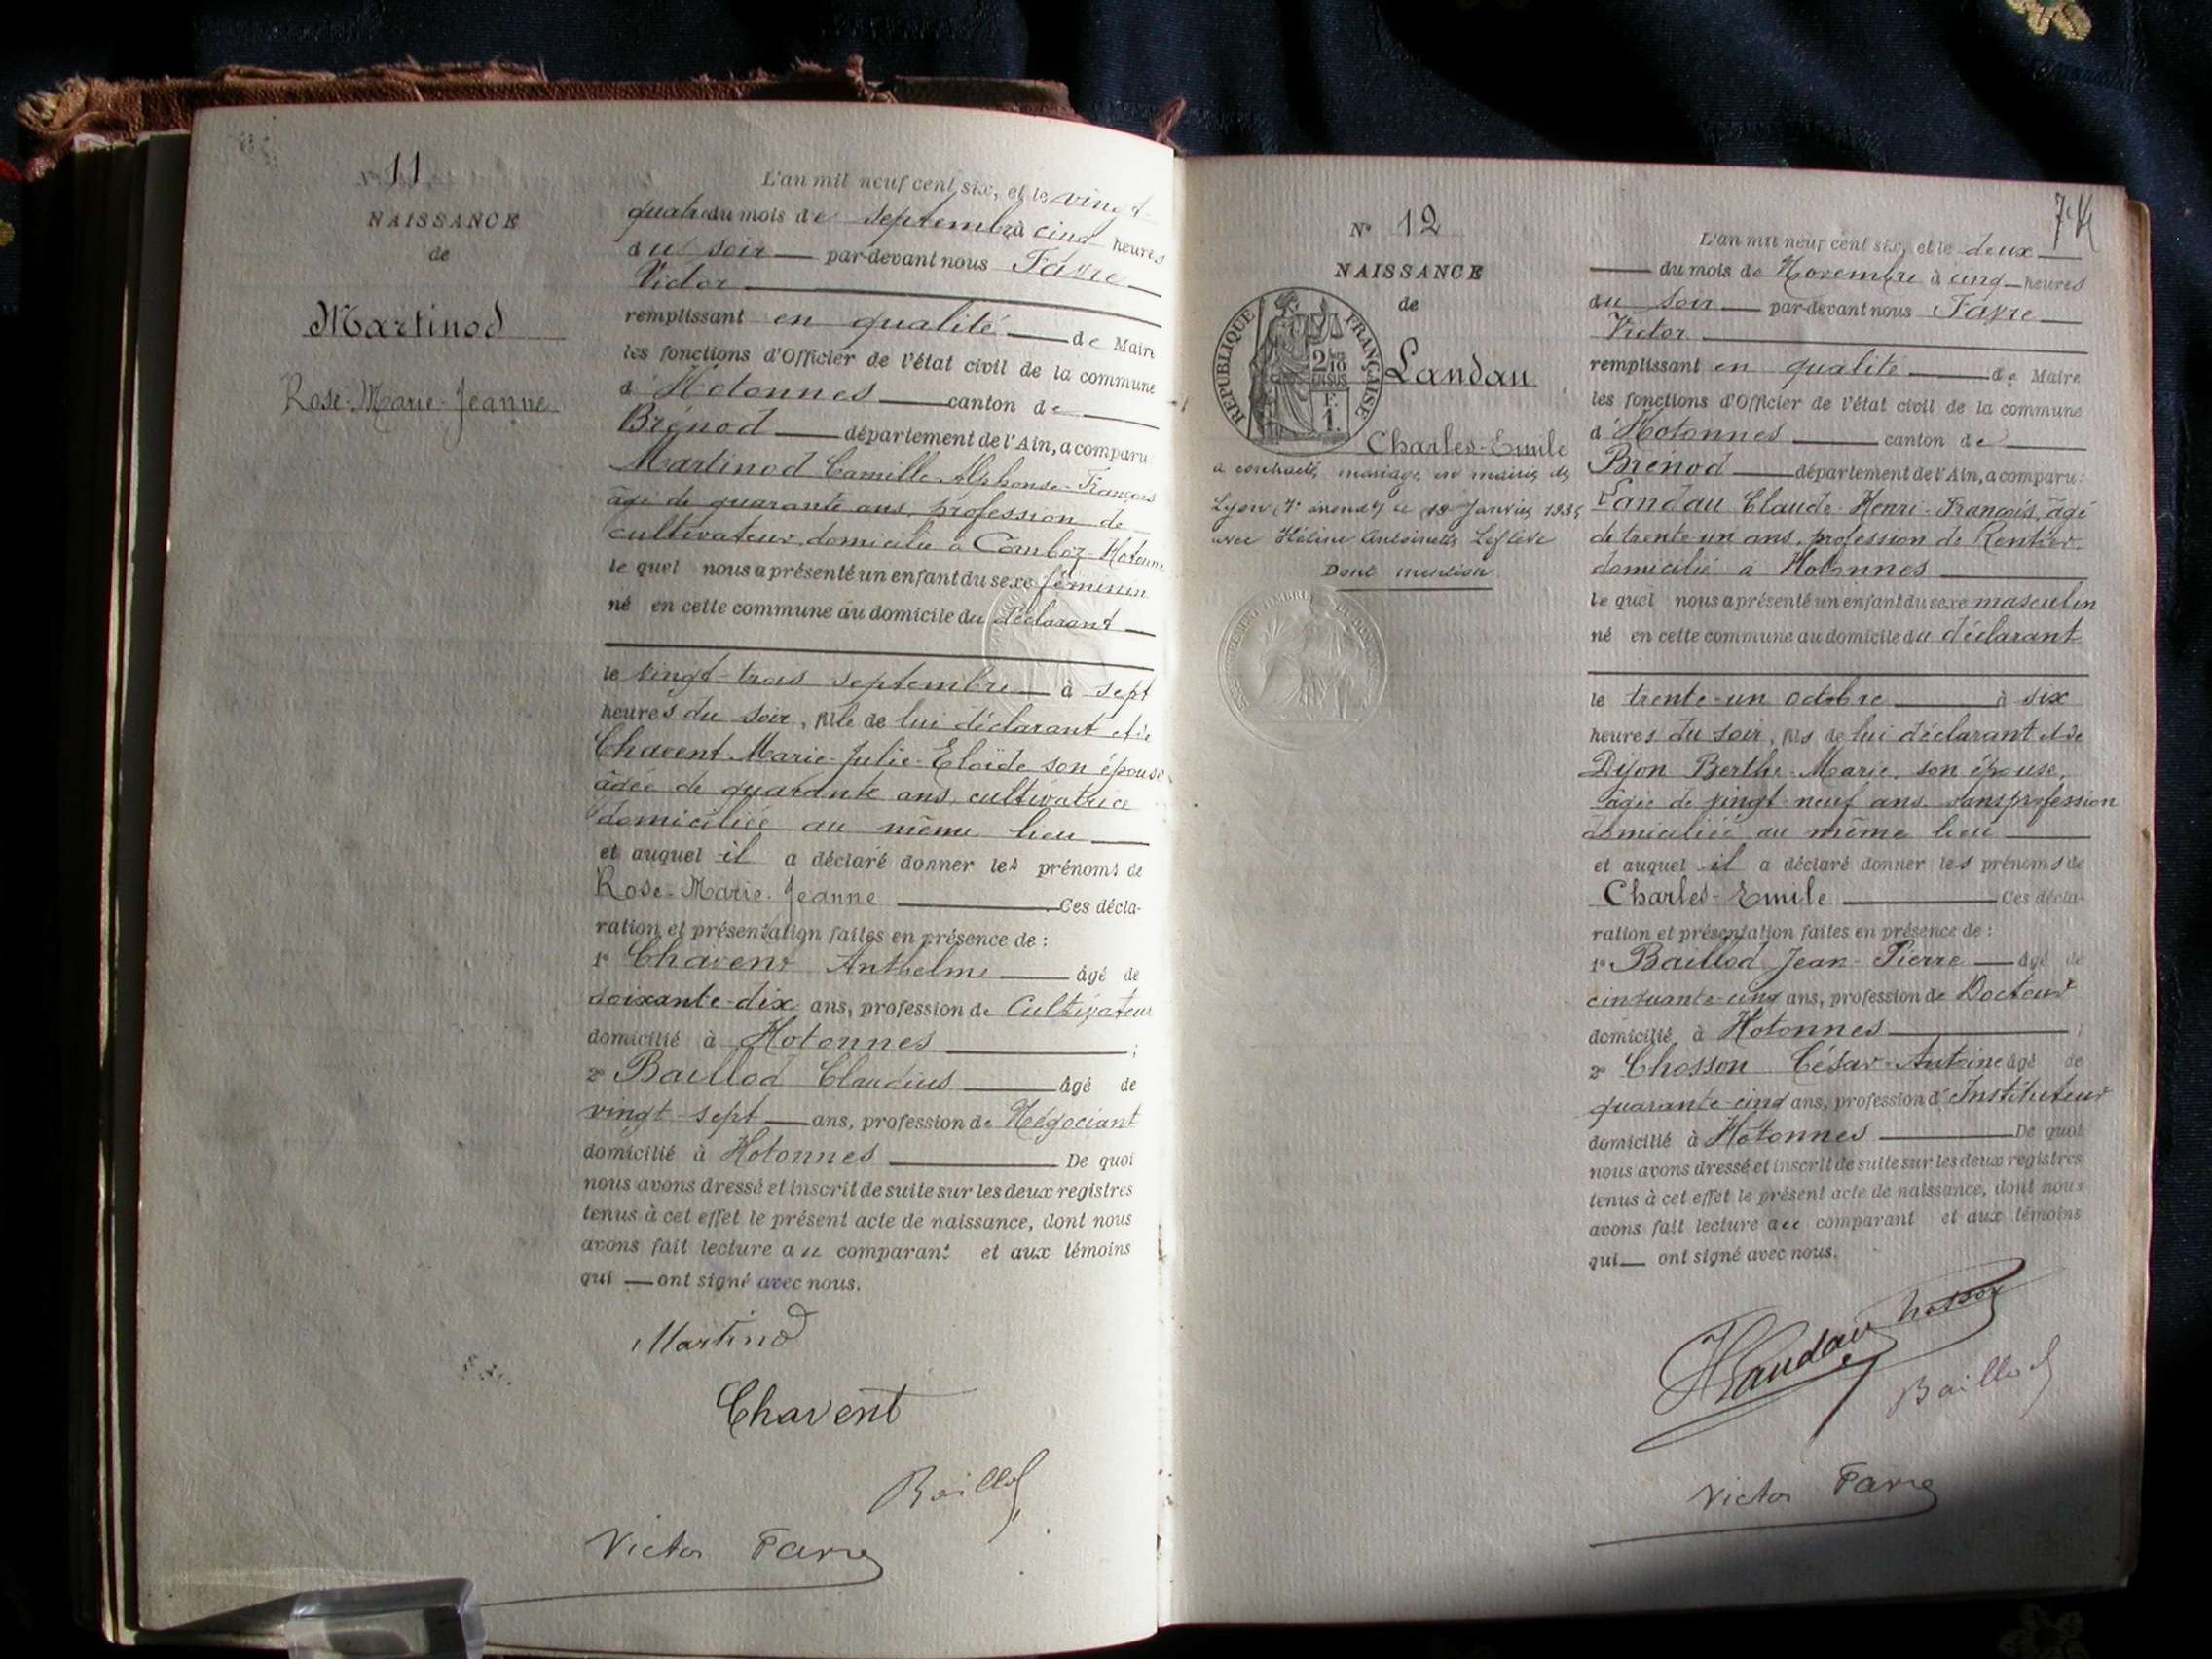 N° 11
NAISSANCE
de
Martinod
Rose-Marie-Jeanne
L'an mil neuf cent six, et le vingt-
quatre du mois de septembre à cinq heures
du soir — par-devant nous Favre
Victor
remplissant en qualité de Maire
les fonctions d'Officier de l'état civil de la commune
d'Hotonnes canton de
Brénod département de l'Ain, a comparu
Martinod Camille-Alphonse-François
âgé de quarante ans, profession de
cultivateur, domicilié à Hotonnes
le quel nous a présenté un enfant du sexe féminin
né en cette commune au domicile du déclarant
le vingt-trois septembre à sept
heures du soir, fille de lui déclarant et de
Chavent Marie-Julie-Eloïde son épouse
âgée de quarante ans, cultivatrice
domiciliée au même lieu
et auquel il a déclaré donner les prénoms de
Rose-Marie-Jeanne Ces décla-
ration et présentation faites en présence de :
1° Chavent Anthelme âgé de
soixante-dix ans, profession de Cultivateur
domicilié à Hotonnes ;
2° Baillod Claudius âgé de
vingt-sept ans, profession de Négociant
domicilié à Hotonnes De quoi
nous avons dressé et inscrit de suite sur les deux registres
tenus à cet effet le présent acte de naissance, dont nous
avons fait lecture au comparant et aux témoins
qui — ont signé avec nous.
Martinod
Chavent
Baillod
Victor Favre
N° 12
NAISSANCE
de
RÉPUBLIQUE FRANÇAISE
2/10 EN SUS
F.
1.
Landau
Charles-Emile
a contracté mariage en mairie de
Lyon 7e arrondt le 19 Janvier
avec Hélène Antoinette
Dont mention
L'an mil neuf cent six, et le deux
du mois de Novembre à cinq heures
du soir par-devant nous Favre
Victor
remplissant en qualité de Maire
les fonctions d'Officier de l'état civil de la commune
d'Hotonnes canton de
Brénod département de l'Ain, a comparu :
Landau Claude-Henri-François, âgé
de trente un ans, profession de Rentier
domicilié à Hotonnes
le quel nous a présenté un enfant du sexe masculin
né en cette commune au domicile du déclarant
le trente-un octobre à six
heures du soir, fils de lui déclarant et de
Dijon Berthe-Marie, son épouse,
âgée de vingt-neuf ans, sans profession
domiciliée au même lieu
et auquel il a déclaré donner les prénoms de
Charles-Emile Ces décla-
ration et présentation faites en présence de :
1° Baillod Jean-Pierre âgé de
cinquante-cinq ans, profession de Docteur
domicilié à Hotonnes ;
2° Chosson César-Antoine âgé de
quarante-cinq ans, profession d'Instituteur
domicilié à Hotonnes De quoi
nous avons dressé et inscrit de suite sur les deux registres
tenus à cet effet le présent acte de naissance, dont nous
avons fait lecture au comparant et aux témoins
qui — ont signé avec nous.
HLandau Chosson
Baillod
Victor Favre